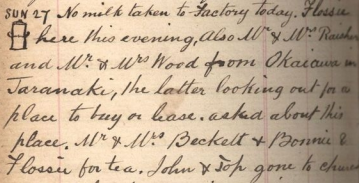 SUN 27 No milk taken to Factory today. Flossie
here this evening, Also Mr & Mrs
and Mr & Mrs Wood from Okaiawa in
Taranaki, the latter looking out for a
place to buy or lease. asked about this
place. Mr & Mrs Beckett & Bonnie &
Flossie for tea. John & Top gone to church